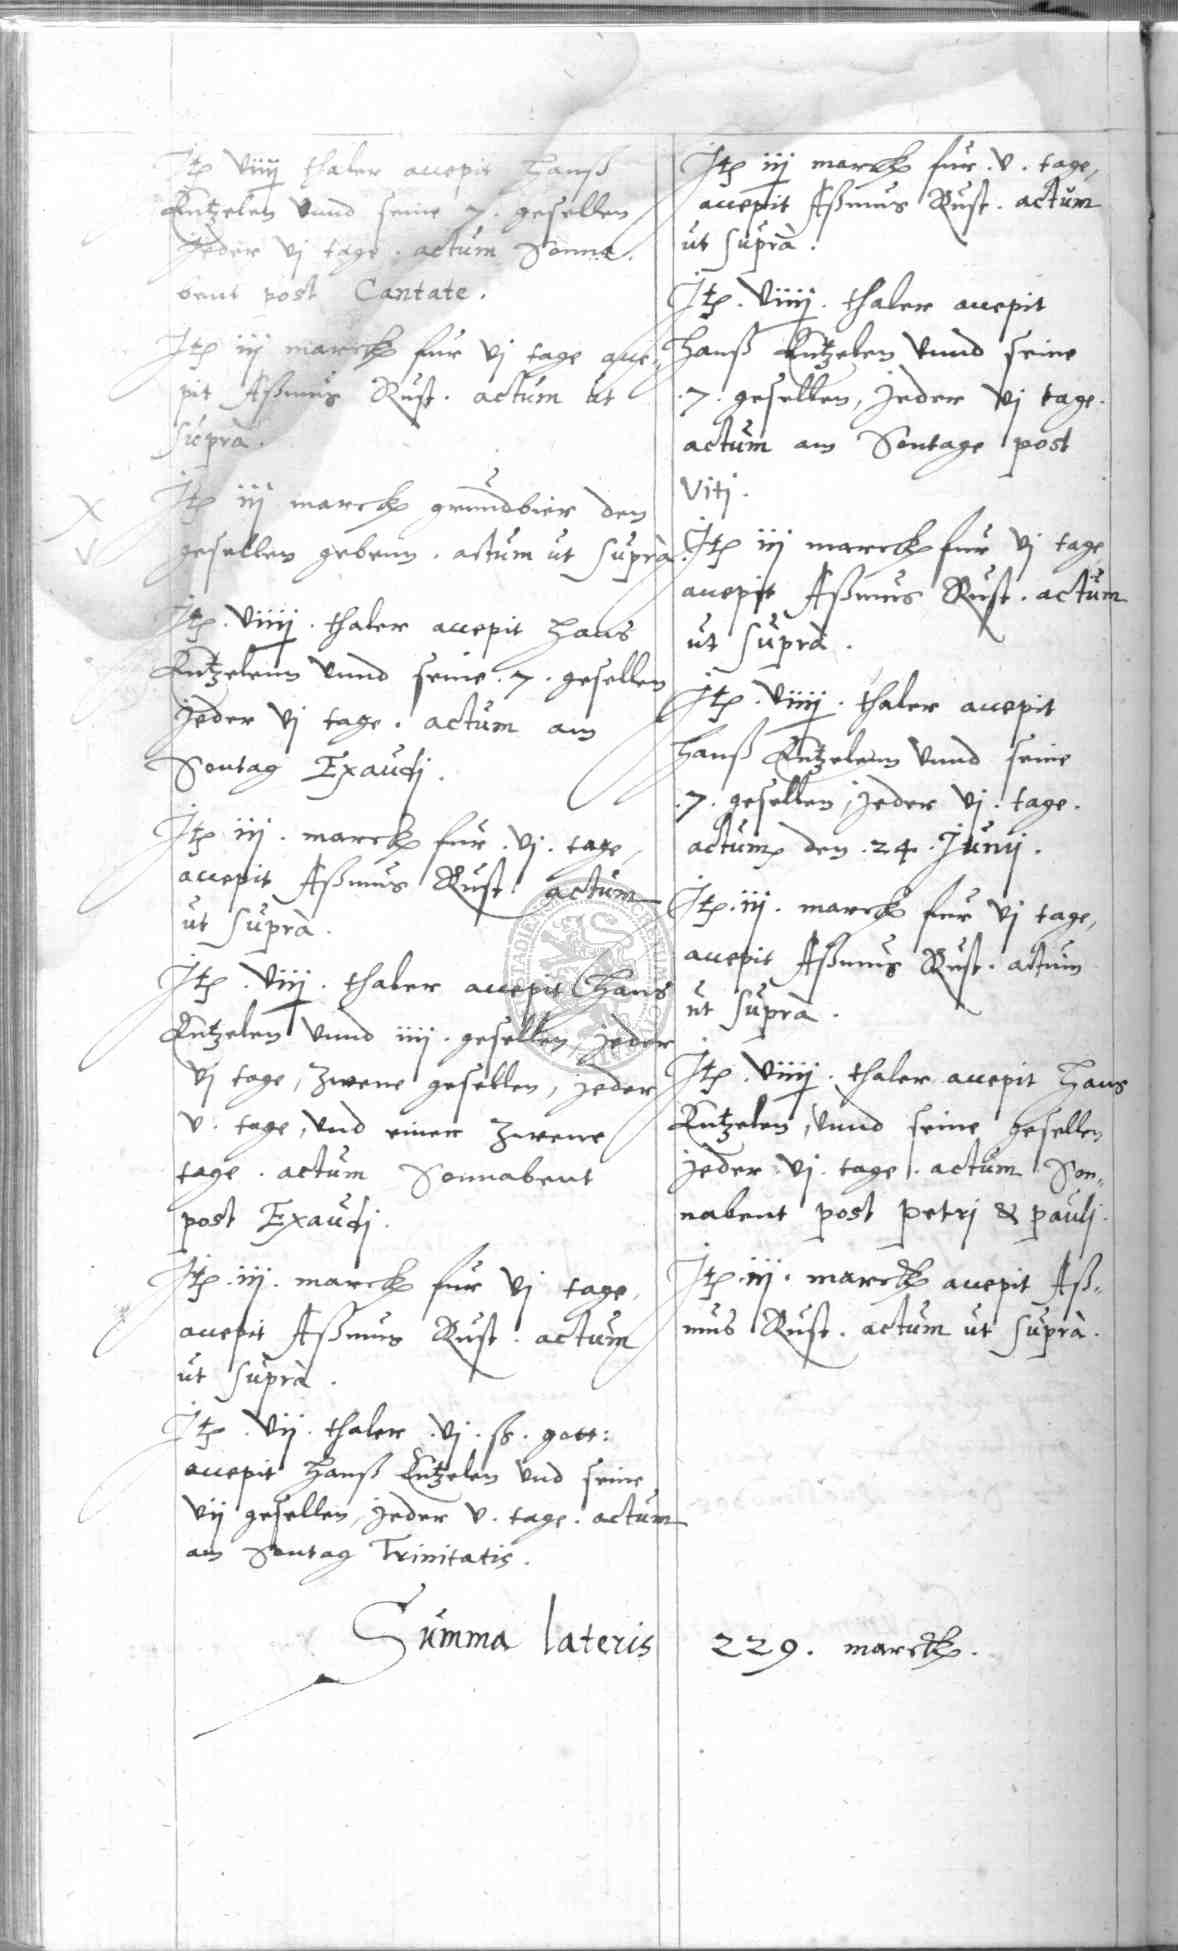 Itp viiij thaler accepit Hanß
Kutzelen vnnd seine 7. gesellen
jeder vj tage. actum Sonna
bent post Cantate.
Itp iij marckh fur vj tage acce-
pit Aßmus Rust. actum ut
supra.
Itp iij marckh grundbier den
gesellen gebenn. actum ut supra
Itp. viiij. thaler accepit Hans
Kutzelenn vnnd seine. 7. gesellen
jeder vj tage. actum am
Sontag Exaudj.
Itp iij. marckh fur. vj. tage,
accepit Aßmus Rust. actum
ut supra.
Itp. viij. thaler accepit Hans
Kutzelen vnnd iiij. gesellen, jeder
vj tage, zwene gesellen, jeder
v. tage, vnd einer zwene
tage. actum Sonnabent
post Exaudj.
Itp. iij. marckh fur vj tage,
accepit Aßmus Rust. actum
ut supra.
Itp. vij. thaler. vj. ß. gott:
accepit Hanß Kutzelen vnd seine
vij gesellen, jeder v. tage. actum
am Sontag Trinitatis.
Itp iij marckh fur. v. tage,
accepit Aßmus Rust. actum
ut supra.
Itp. viiij. thaler accepit
Hanß Kutzelen vnnd seine
.7. gesellen, jeder vj tage.
actum am Sontage post
Vitj.
Itp iij marckh fur vj tage
accepit Aßmus Rust. actum
ut supra.
Itp. viiij. thaler accepit
Hanß Kutzelenn vnnd seine
.7. gesellen, jeder vj. tage.
actum den. 24. Junij.
Itp. iij. marckh fur vj tage,
accepit Aßmus Rust. actum
ut supra.
Itp. viiij. thaler accepit Hans
Kutzelen, vnnd seine gesellen
jeder. vj. tage. actum Son-
nabent post Petrj & Paulj.
Itp. iij. marckh accepit Aß-
mus Rust. actum ut supra.
Summa lateris 229. marckh.